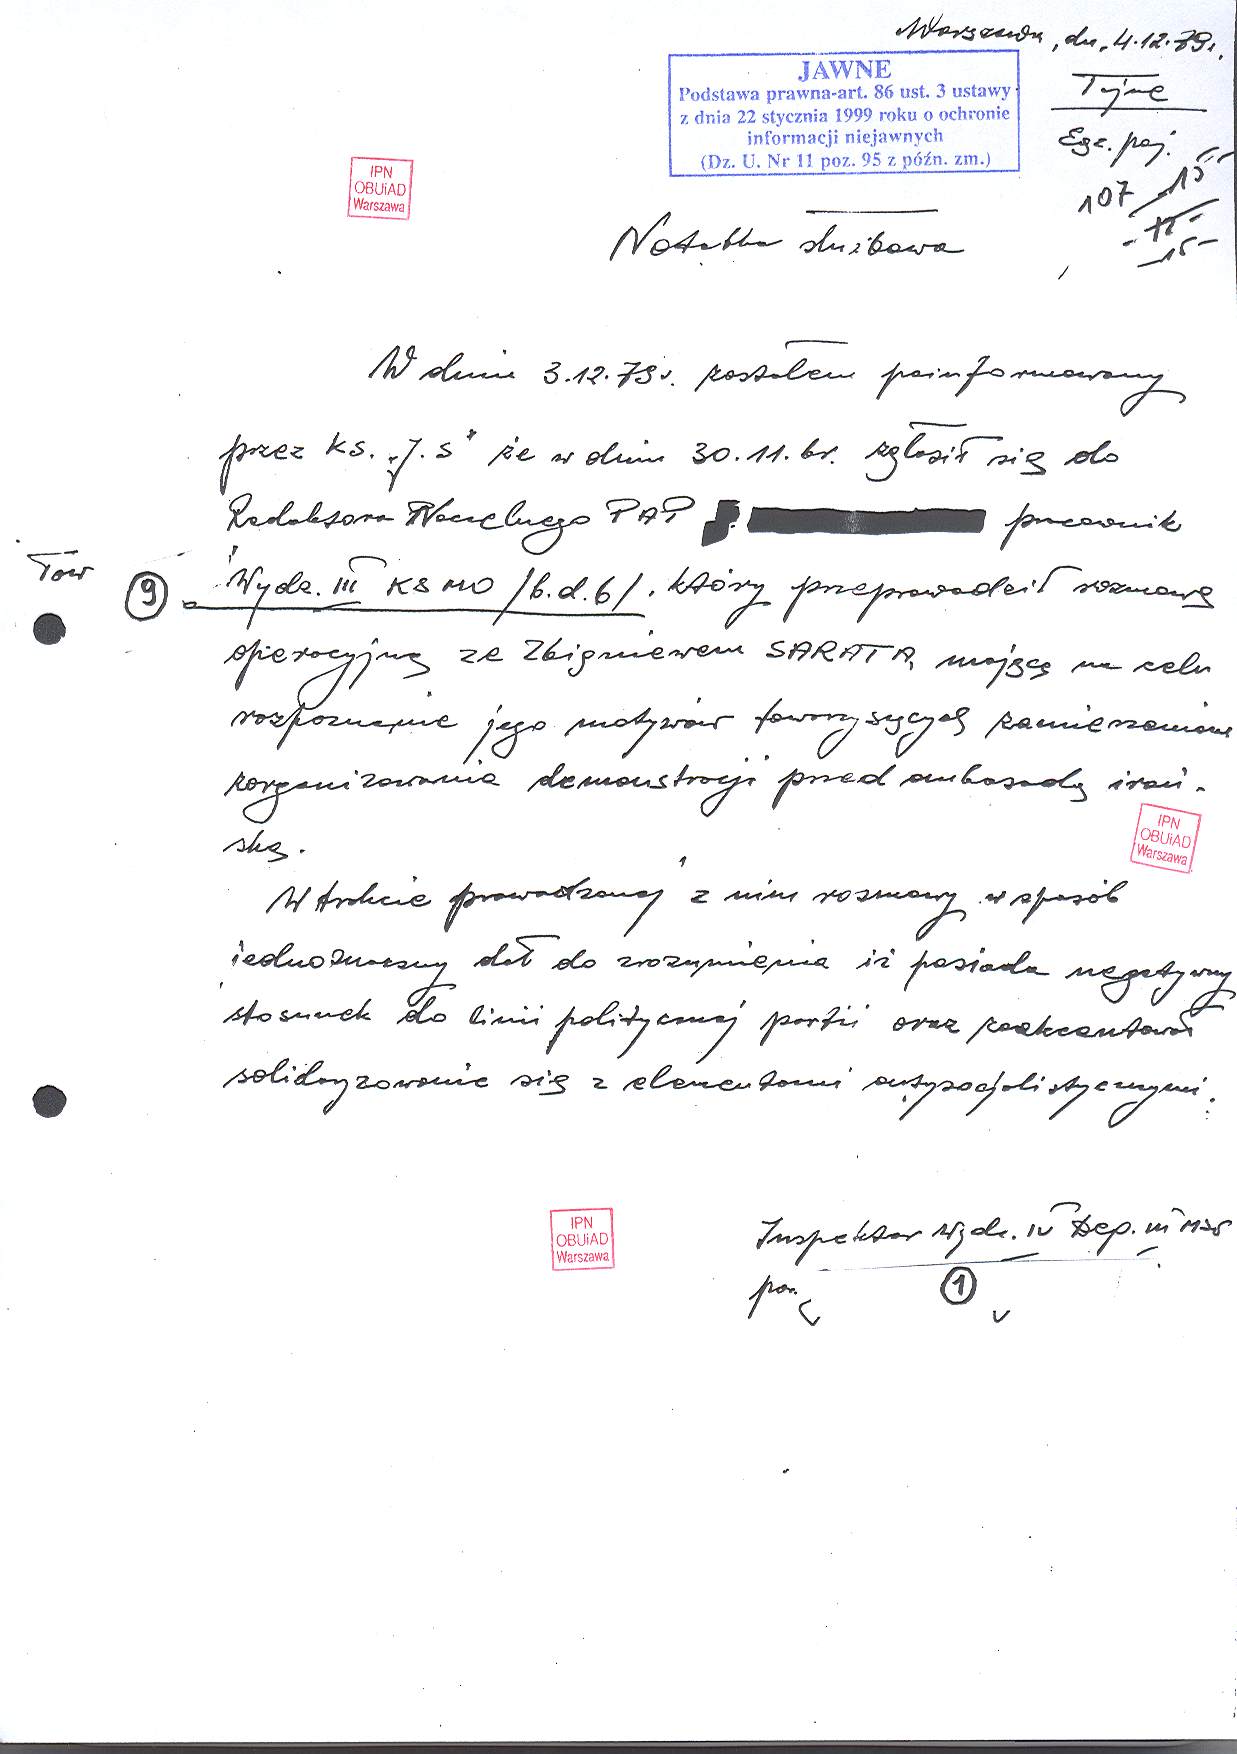 Warszawa, dn. 4.12.79r.
Tajne
Egz. poj.
JAWNE
Podstawa prawna-art. 86 ust. 3 ustawy
z dnia 22 stycznia 1999 roku o ochronie
informacji niejawnych
(Dz. U. Nr 11 poz. 95 z późn. zm.)
107
15
IPN
OBUiAD
Warszawa
Notatka służbowa
W dniu 3.12.79r. zostałem poinformowany
przez KS. „J.S" że w dniu 30.11.br. zgłosił się do
Redaktora Naczelnego PAP pracownik
Wydz. III KSMO /b.d.6/, który przeprowadził rozmowę
operacyjną ze Zbigniewem SARATA, mającą na celu
rozpoznanie jego motywów towarzyszących
zorganizowania demonstracji przed ambasadą irań-
ską.
IPN
OBUiAD
Warszawa
W trakcie prowadzonej z nim rozmowy w sposób
jednoznaczny dał do zrozumienia iż posiada negatywny
stosunek do linii politycznej partii oraz zaakcentował
solidaryzowanie się z elementami antysocjalistycznymi.
9
IPN
OBUiAD
Warszawa
Inspektor Wydz. IV Dep. III MSW
por.
1